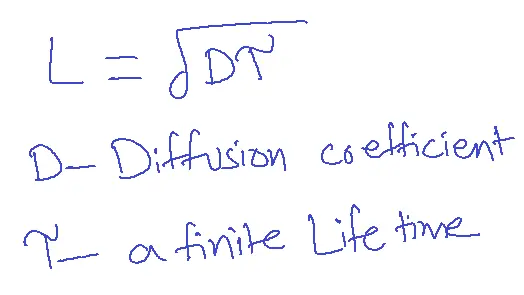 L = √Dτ
D- Diffusion coefficient
τ- a finite Life time